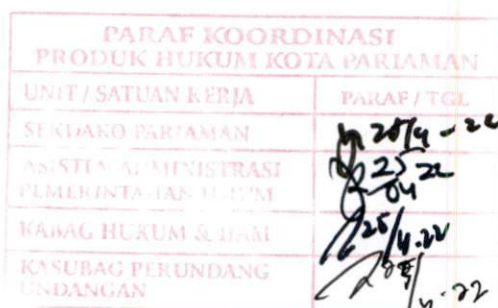 PARAF KOORDINASI
PRODUK HUKUM KOTA PARIAMAN
UNIT / SATUAN KERJA PARAF / TGL
SEKDAKO PARIAMAN
ASISTEN ADMINISTRASI 25 22
PEMERINTAHAN UMUM 04
KABAG HUKUM & HAM 25/4.22
KASUBAG PERUNDANG
UNDANGAN